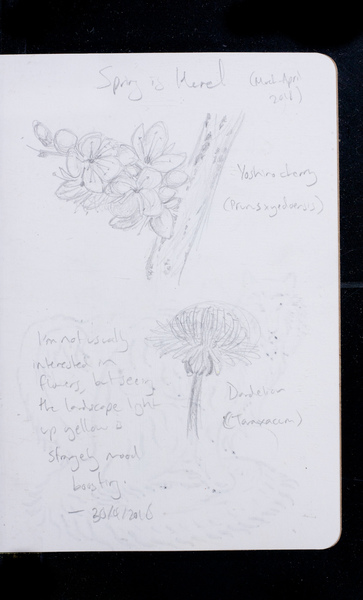 Spring is Here!
(March-April
2016)
Yoshino cherry
(Prunus x yedoensis)
I'm not usually
interested in
flowers, but seeing
the landscape light
up yellow is
strangely mood
boosting.
Dandelion
(Taraxacum)
— 30/4/2016